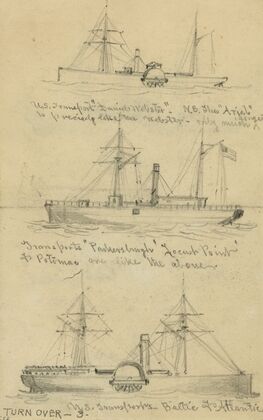 U.S. Transport "Daniel Webster" - N.B. The "Ariel"
is precisely like the Webster - only much larger
Transports "Parkersburgh" "Locust Point"
& Potomac are like the above
TURN OVER - 3. U.S. Transports Baltic & Atlantic